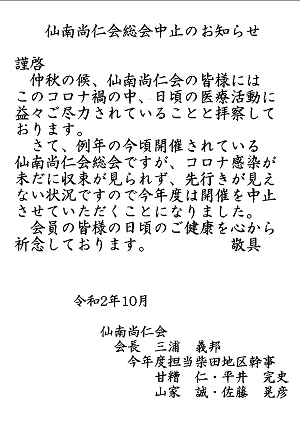 仙南尚仁会総会中止のお知らせ
謹啓
　仲秋の候、仙南尚仁会の皆様には
このコロナ禍の中、日頃の医療活動に
益々ご尽力されていることと拝察して
おります。
　さて、例年の今頃開催されている
仙南尚仁会総会ですが、コロナ感染が
未だに収束が見られず、先行きが見え
ない状況ですので今年度は開催を中止
させていただくことになりました。
　会員の皆様の日頃のご健康を心から
祈念しております。　　　　　敬具
令和2年10月
仙南尚仁会
会長　三浦　義邦
今年度担当柴田地区幹事
甘糟　仁・平井　完史
山家　誠・佐藤　晃彦